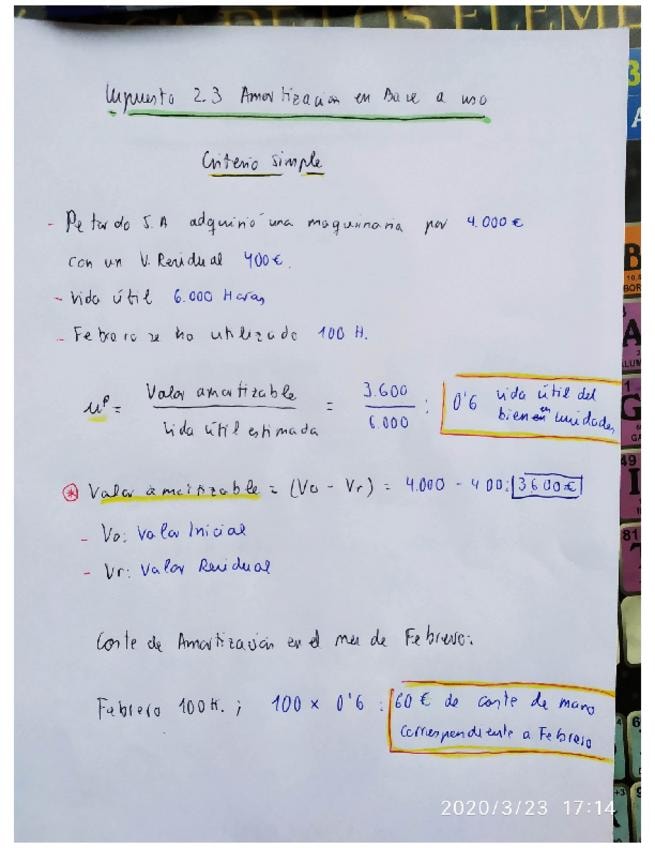 Impuesto 2.3 Amortización en Base a uso
Criterio simple
- Petardo S.A adquirió una maquinaria por 4.000 €
con un V. Residual 400 €.
- Vida útil 6.000 Horas
- Febrero se ha utilizado 100 H.
Valor amortizable / Vida útil estimada = 3.600 / 6.000 : 0'6 vida útil del
bien en unidades
* Valor amortizable = (Vo - Vr) = 4.000 - 400: 3600€
- Vo: Valor Inicial
- Vr: Valor Residual
Coste de Amortización en el mes de Febrero:
Febrero 100H. ; 100 x 0'6 : 60 € de coste de mano
correspondiente a Febrero
2020/3/23 17:14
B
BOR
A
ALUM
G
GA
49
I
81